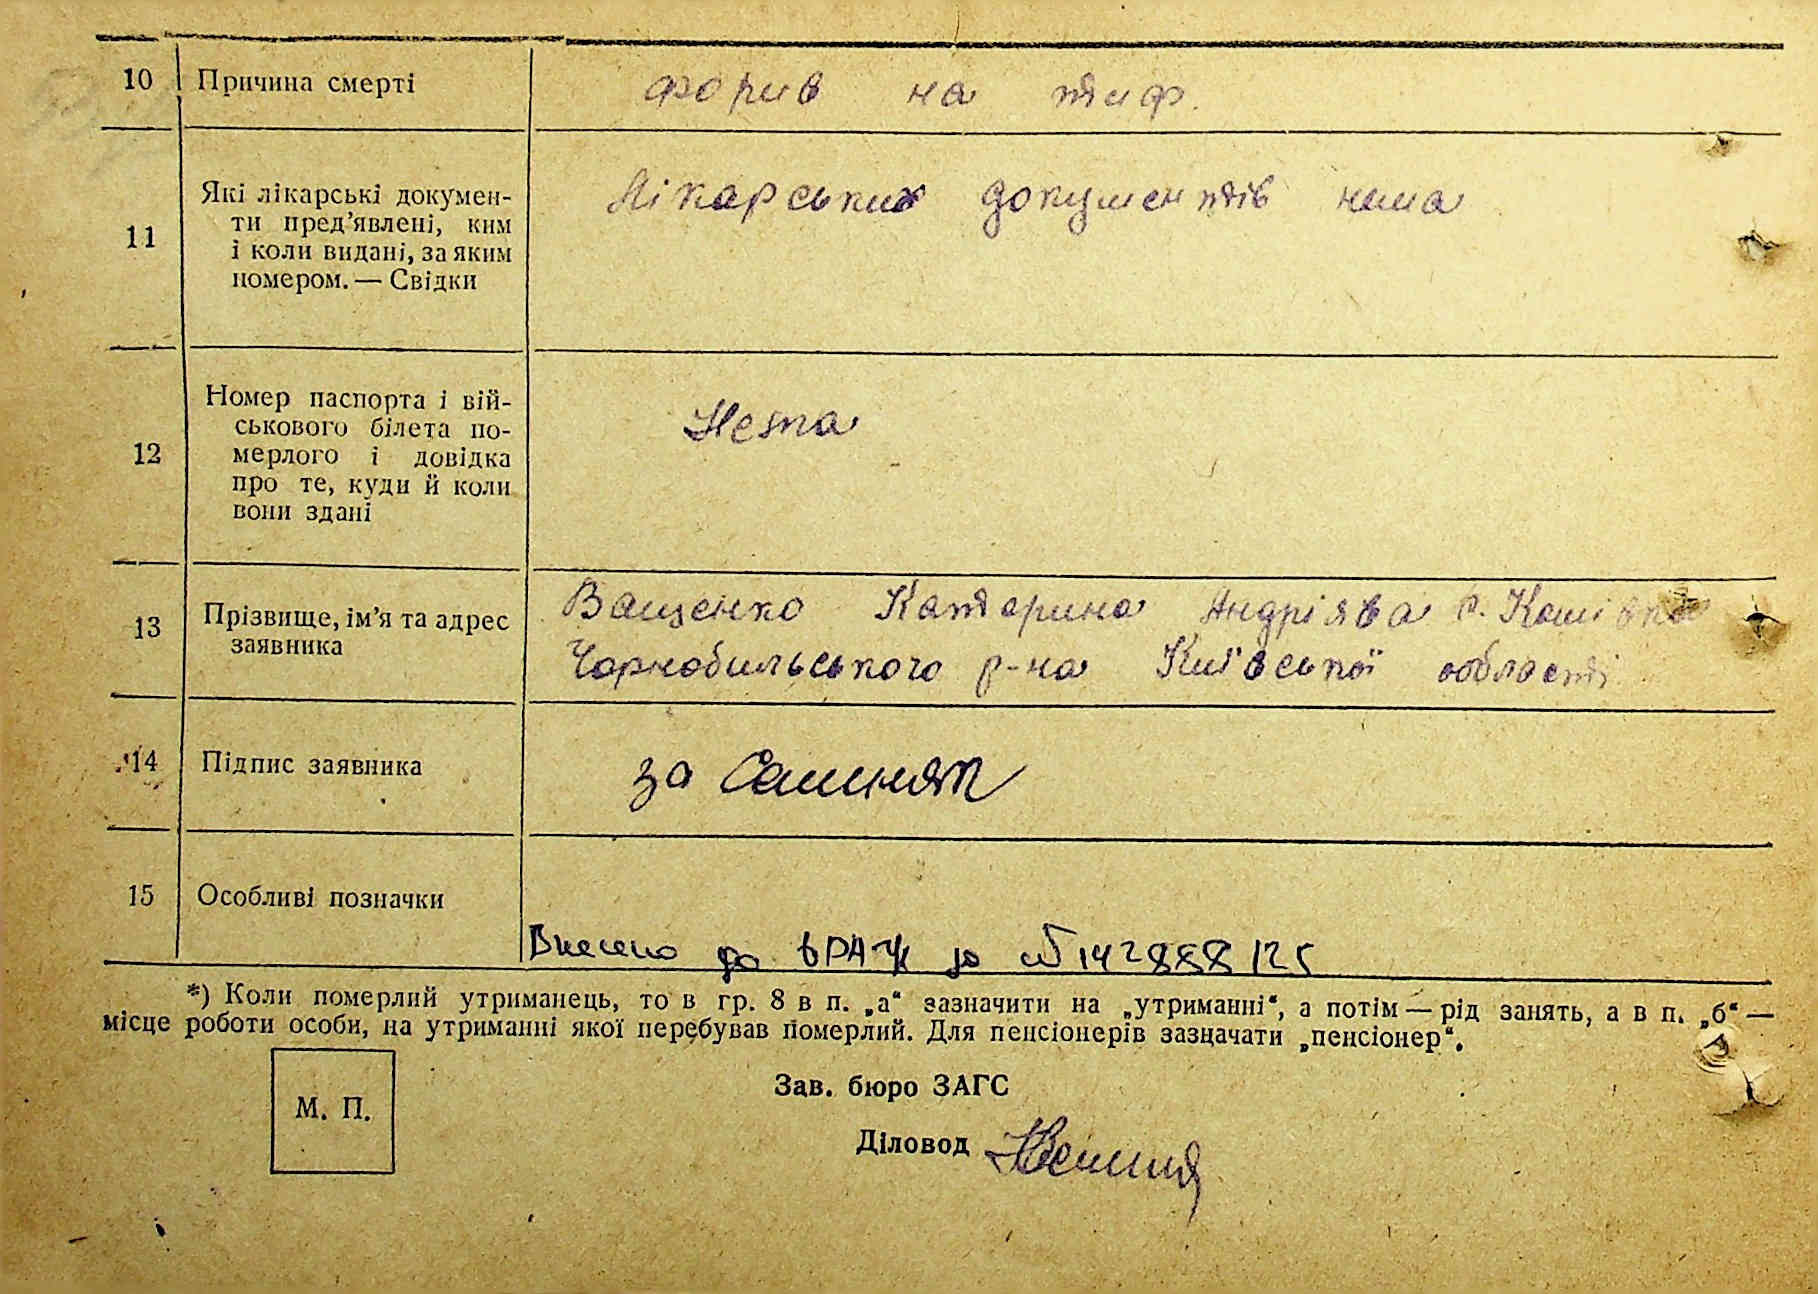 10 Причина смерті форив на тиф.
11 Які лікарські докумен-
ти пред’явлені, ким
і коли видані, за яким
номером. — Свідки
Лікарських документів нема
12 Номер паспорта і вій-
ськового білета по-
мерлого і довідка
про те, куди й коли
вони здані
Нема
13 Прізвище, ім’я та адрес
заявника
Ващенко Катерина Андріява с. Кошівка
Чорнобильського р-на Київської області
14 Підпис заявника за
15 Особливі позначки
Внесено до за №142888125
*) Коли померлий утриманець, то в гр. 8 в п. „а“ зазначити на „утриманні“, а потім — рід занять, а в п. „б“ —
місце роботи особи, на утриманні якої перебував померлий. Для пенсіонерів зазначати „пенсіонер“.
М. П.
Зав. бюро ЗАГС
Діловод